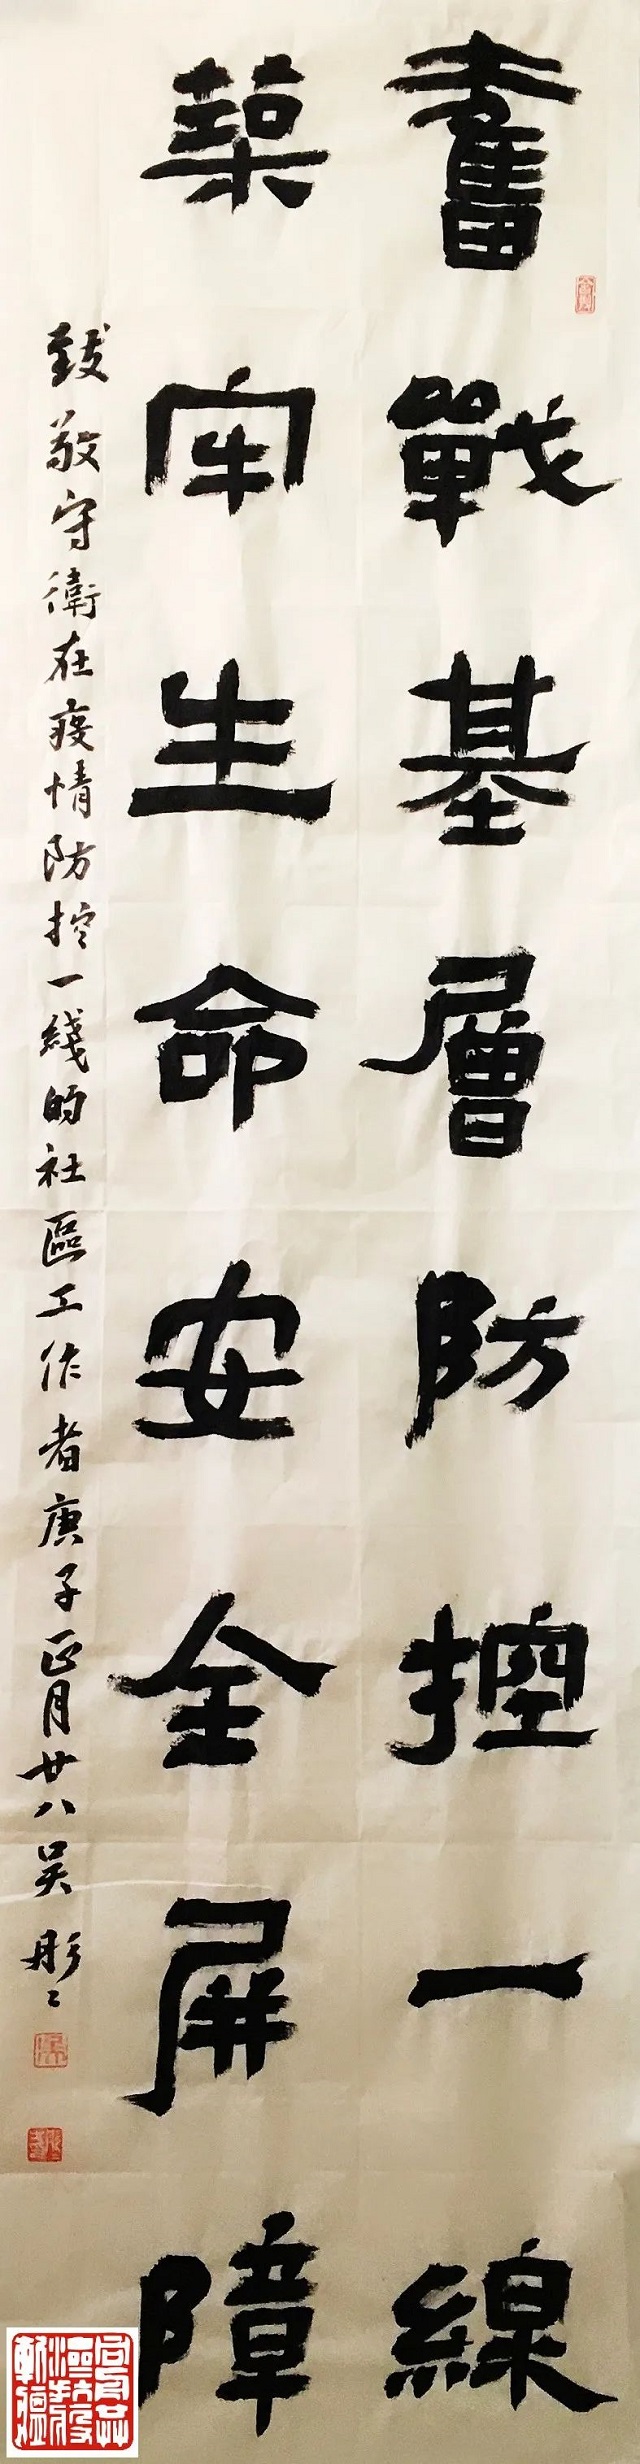 奮戰基層防控一線
築牢生命安全屏障
致敬守衛在疫情防控一綫的社區工作者庚子正月廿八吴彤〻